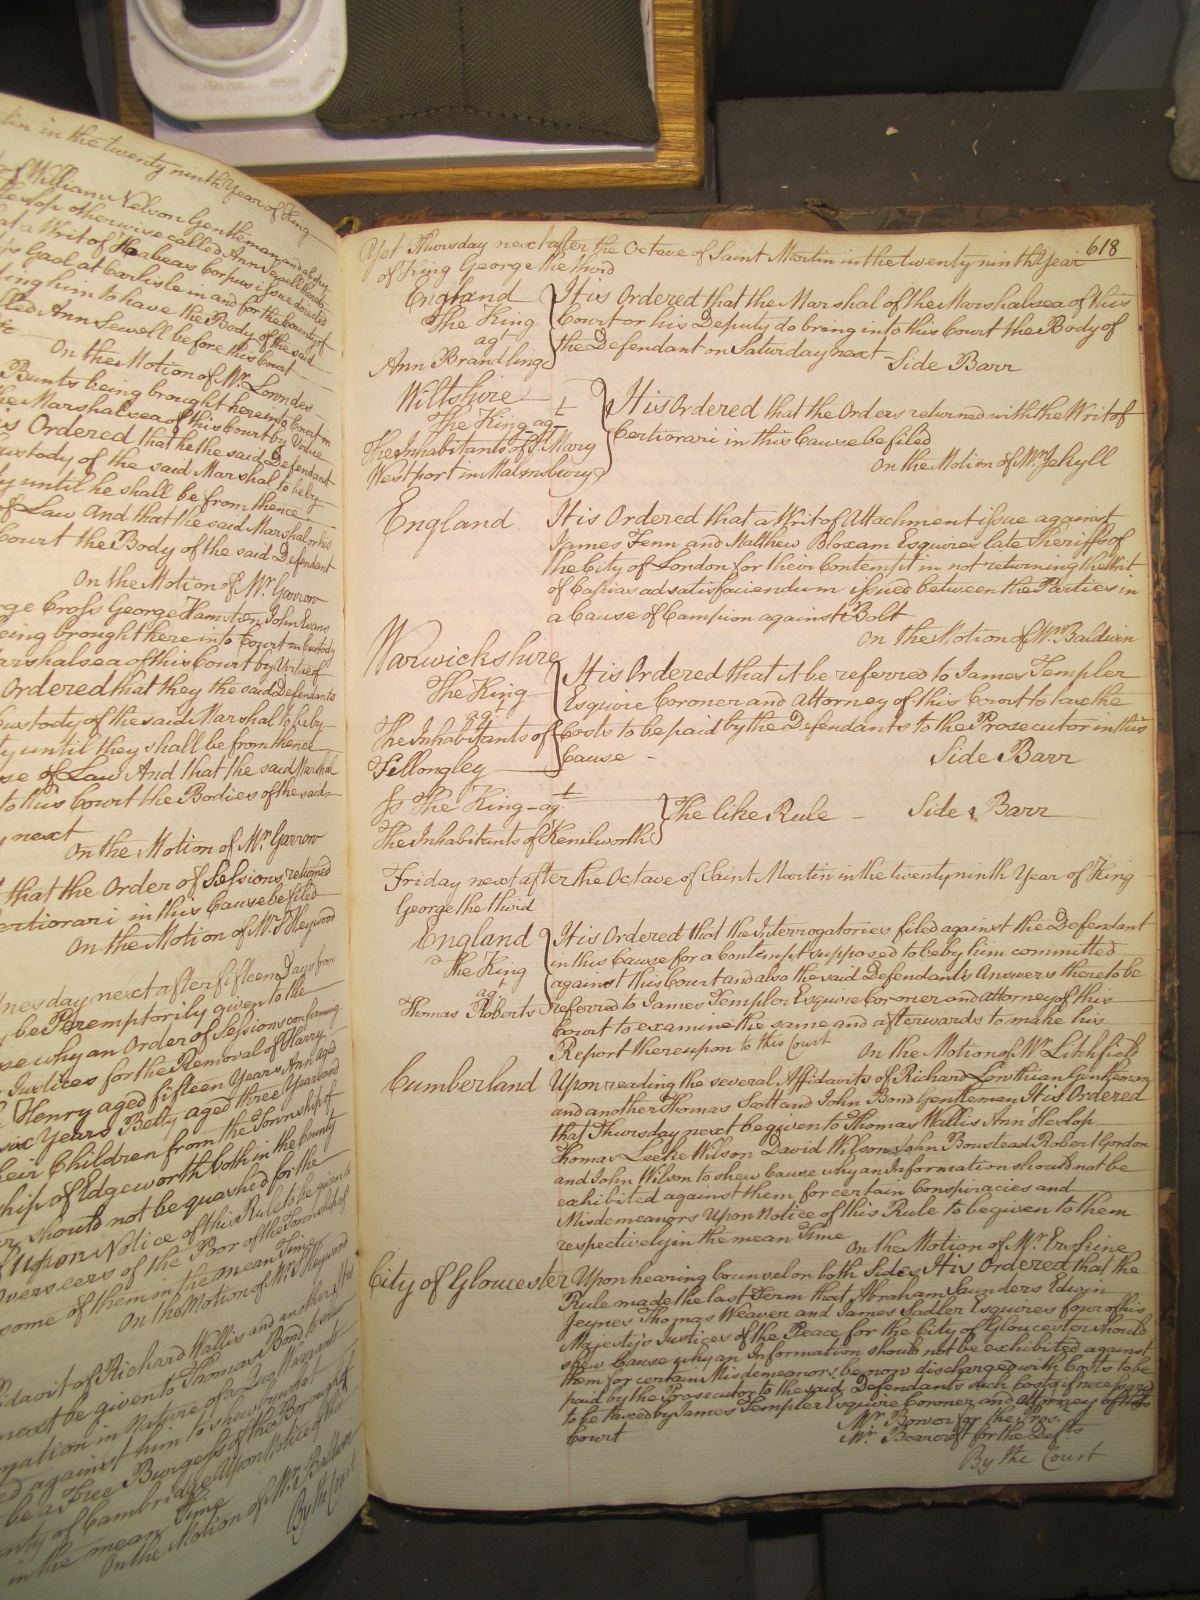 tin in the twenty ninth Year of King
of William Nelson Gentleman and
otherwise called Ann Sewell
a Writ of Habeas Corpus issued directed
Gaol at Carlisle in and for the County of
ding him to have the Body of the said
Ann Sewell before this Court
On the Motion of Mr. Lowndes
Bunts being brought here into Court in
the Marshalsea of this Court by Virtue
is Ordered that he the said Defendant
Custody of the said Marshal to be by
until he shall be from thence
of Law And that the said Marshal or his
Court the Body of the said Defendant
On the Motion of Mr. Garrow
Cross George Hamston John Evans
being brought here into Court in Custody
Marshalsea of this Court by Virtue of
Ordered that they the said Defendants
Custody of the said Marshal to be by
until they shall be from thence
of Law And that the said Marshal
to this Court the Bodies of the said
next
On the Motion of Mr. Garrow
that the Order of Sessions returned
Certiorari in this Cause be filed
On the Motion of Mr. S. Heywood
next after fifteen Days from
be Peremptorily given to the
why an Order of Sessions confirming
Justices for the Removal of Harry
Henry aged fifteen Years Ann aged
six Years Betty aged three Years and
their Children from the Township of
of Edgeworth both in the County
should not be quashed for the
upon Notice of this Rule to be given to
Overseers of the Poor of the Township of
some of them in the mean Time
On the Motion of Mr. S. Heywood
Affidavit of Richard Wallis and another It is
next be given to Thomas Bond to shew
Information in Nature of a Quo Warranto
against him to shew by what
be a Free Burgess of the Borough of
County of Cambridge Upon Notice of this
in the mean Time
On the Motion of Mr. Baldwin
By the Court
618
Yet Thursday next after the Octave of Saint Martin in the twenty ninth Year
of King George the third
England
The King
agt
Ann Brandling
It is Ordered that the Marshal of the Marshalsea of this
Court or his Deputy do bring into this Court the Body of
the Defendant on Saturday next - Side Barr
Wiltshire
The King agt
The Inhabitants of St. Mary
Westport in Malmsbury
It is Ordered that the Orders returned with the Writ of
Certiorari in this Cause be filed
On the Motion of Mr. Jekyll
England
It is Ordered that a Writ of Attachment issue against
James Fenn and Matthew Bloxam Esquires late Sheriffs of
the City of London for their Contempt in not returning the Writ
of Capias ad satisfaciendum issued between the Parties in
a Cause of Campion against Bolt
On the Motion of Mr. Baldwin
Warwickshire
The King
agt
The Inhabitants of
Fillongley
It is Ordered that it be referred to James Templer
Esquire Coroner and Attorney of this Court to tax the
Costs to be paid by the Defendants to the Prosecutor in this
Cause -
Side Barr
Js The King - agt
The Inhabitants of Kenilworth
The like Rule - Side Barr
Friday next after the Octave of Saint Martin in the twenty ninth Year of King
George the third
England
The King
agt
Thomas Roberts
It is Ordered that the Interrogatories filed against the Defendant
in this Cause for a Contempt supposed to be by him committed
against this Court and also the said Defendants Answers thereto be
referred to James Templer Esquire Coroner and Attorney of this
Court to examine the same and afterwards to make his
Report thereupon to this Court
On the Motion of Mr. Litchfield
Cumberland
Upon reading the several Affidavits of Richard Lowthian Gentleman
and another Thomas Scott and John Bond Gentlemen It is Ordered
that Thursday next be given to Thomas Wallis Ann Heslop
Thomas Leeke Wilson David Wilson John Boustead Robert Gordon
and John Wilson to shew Cause why an Information should not be
exhibited against them for certain Conspiracies and
Misdemeanors Upon Notice of this Rule to be given to them
respectively in the mean Time
On the Motion of Mr. Erskine
City of Gloucester
Upon hearing Counsel on both Sides It is Ordered that the
Rule made the last Term that Abraham Saunders Edwin
Jeynes Thomas Weaver and James Sadler Esquires four of his
Majesty's Justices of the Peace for the City of Gloucester should
shew Cause why an Information should not be exhibited against
them for certain Misdemeanors be now discharged with Costs to be
paid by the Prosecutor to the said Defendants such Costs if necessary
to be taxed by James Templer Esquire Coroner and Attorney of this
Court
Mr. Bower for the Pros.
Mr. Bearcroft for the Defts
By the Court